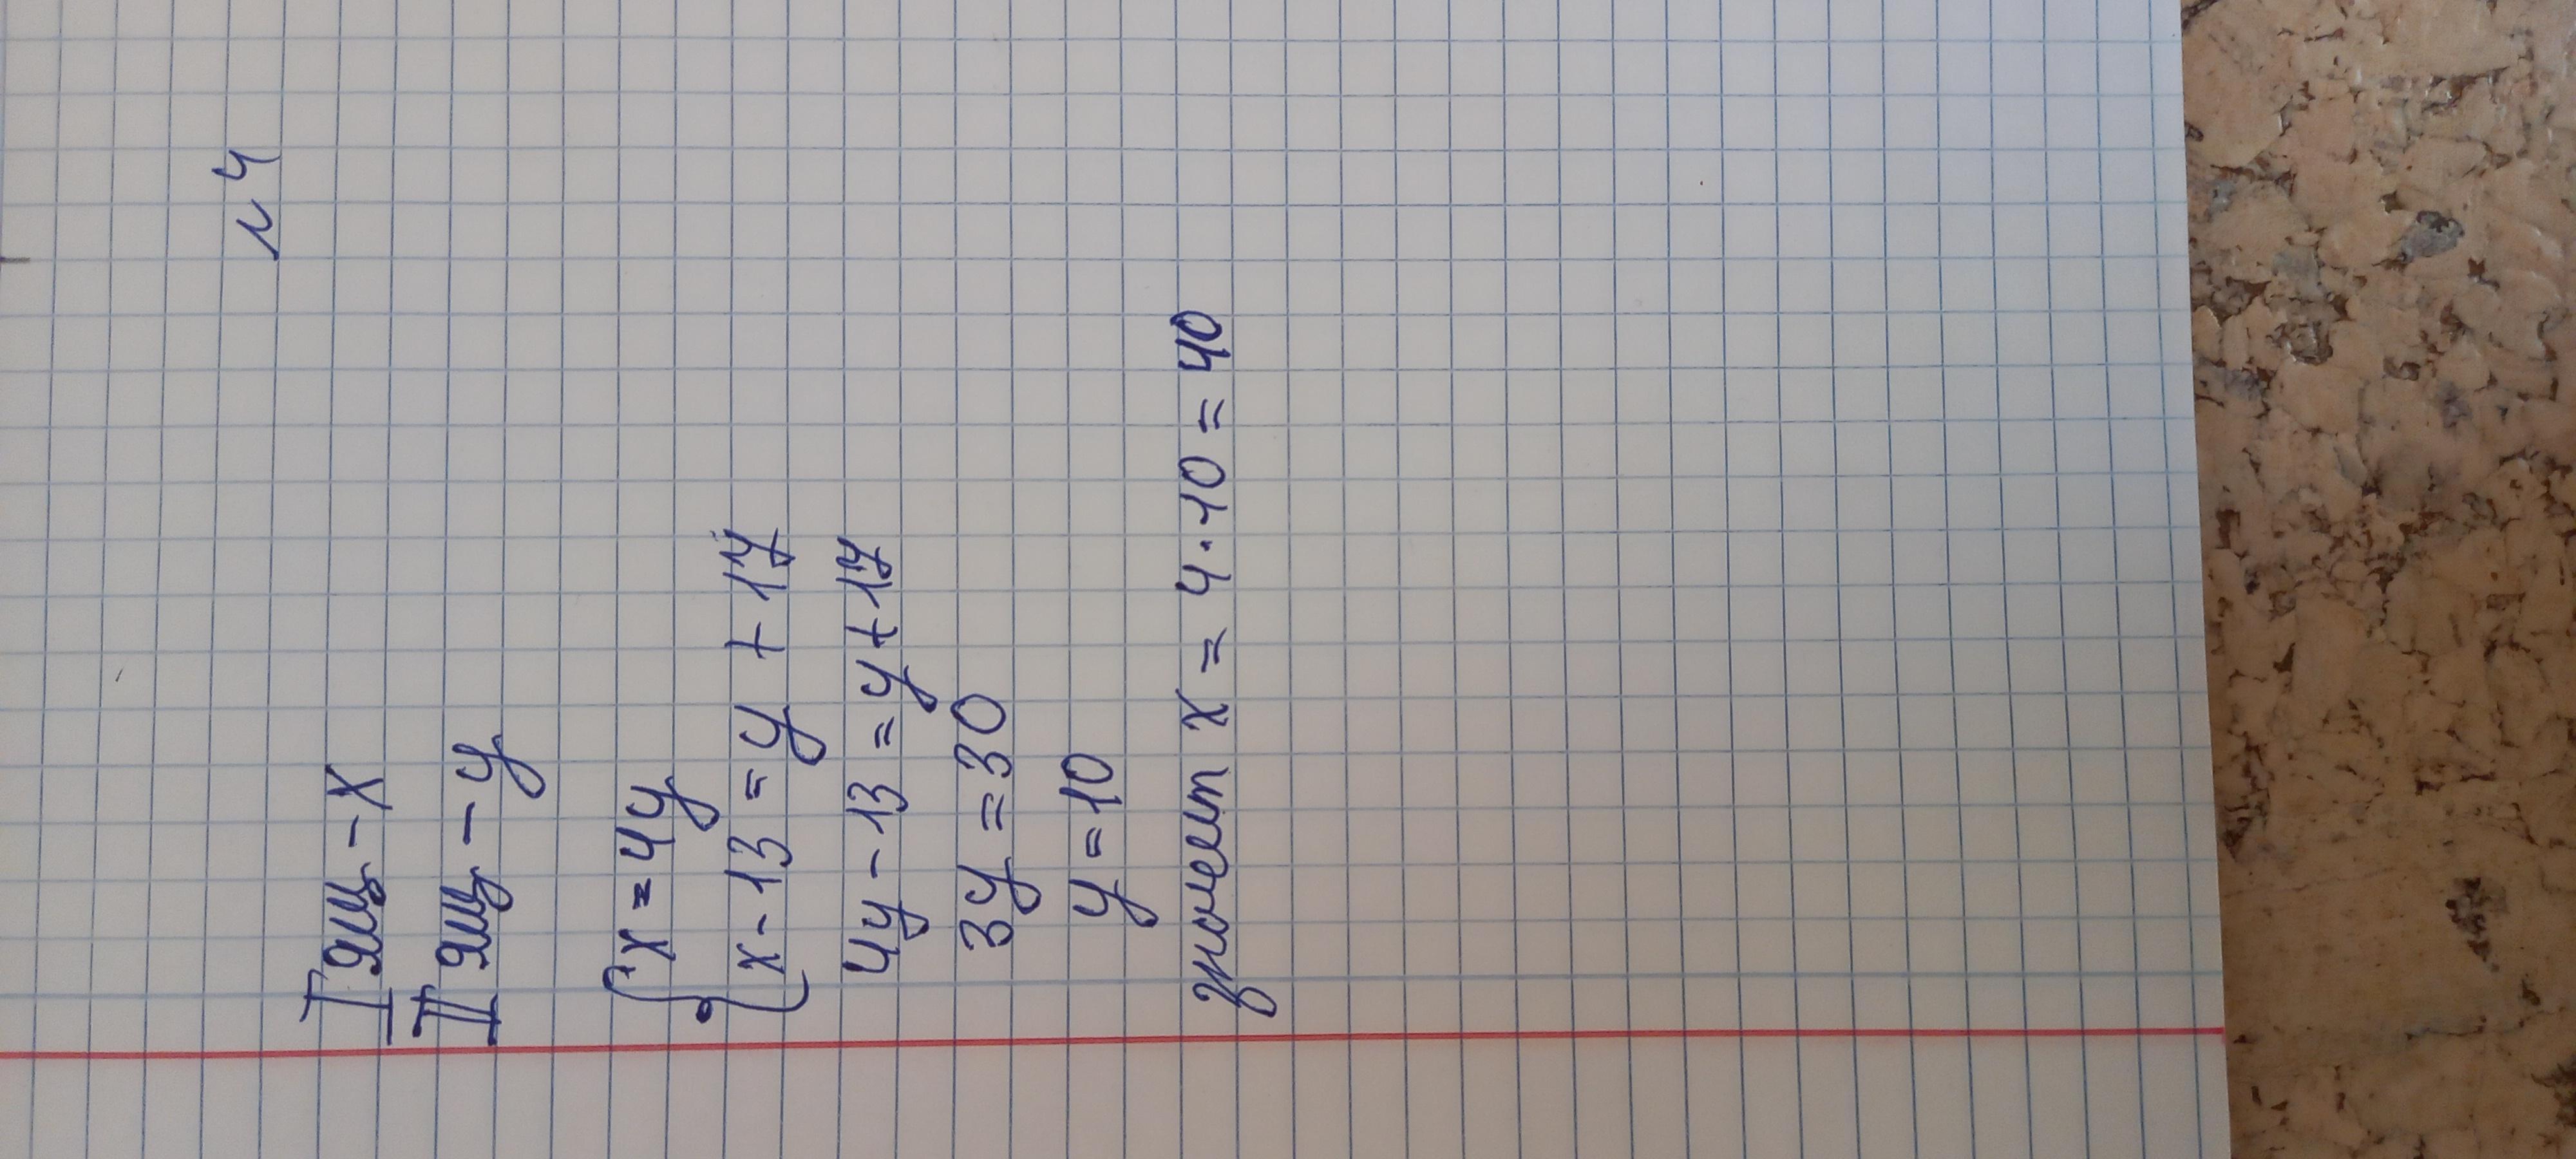 №4
I ящ - x
II ящ - y
{ x = 4y
x - 13 = y + 17
4y - 13 = y + 17
3y = 30
y = 10
значит x = 4 · 10 = 40